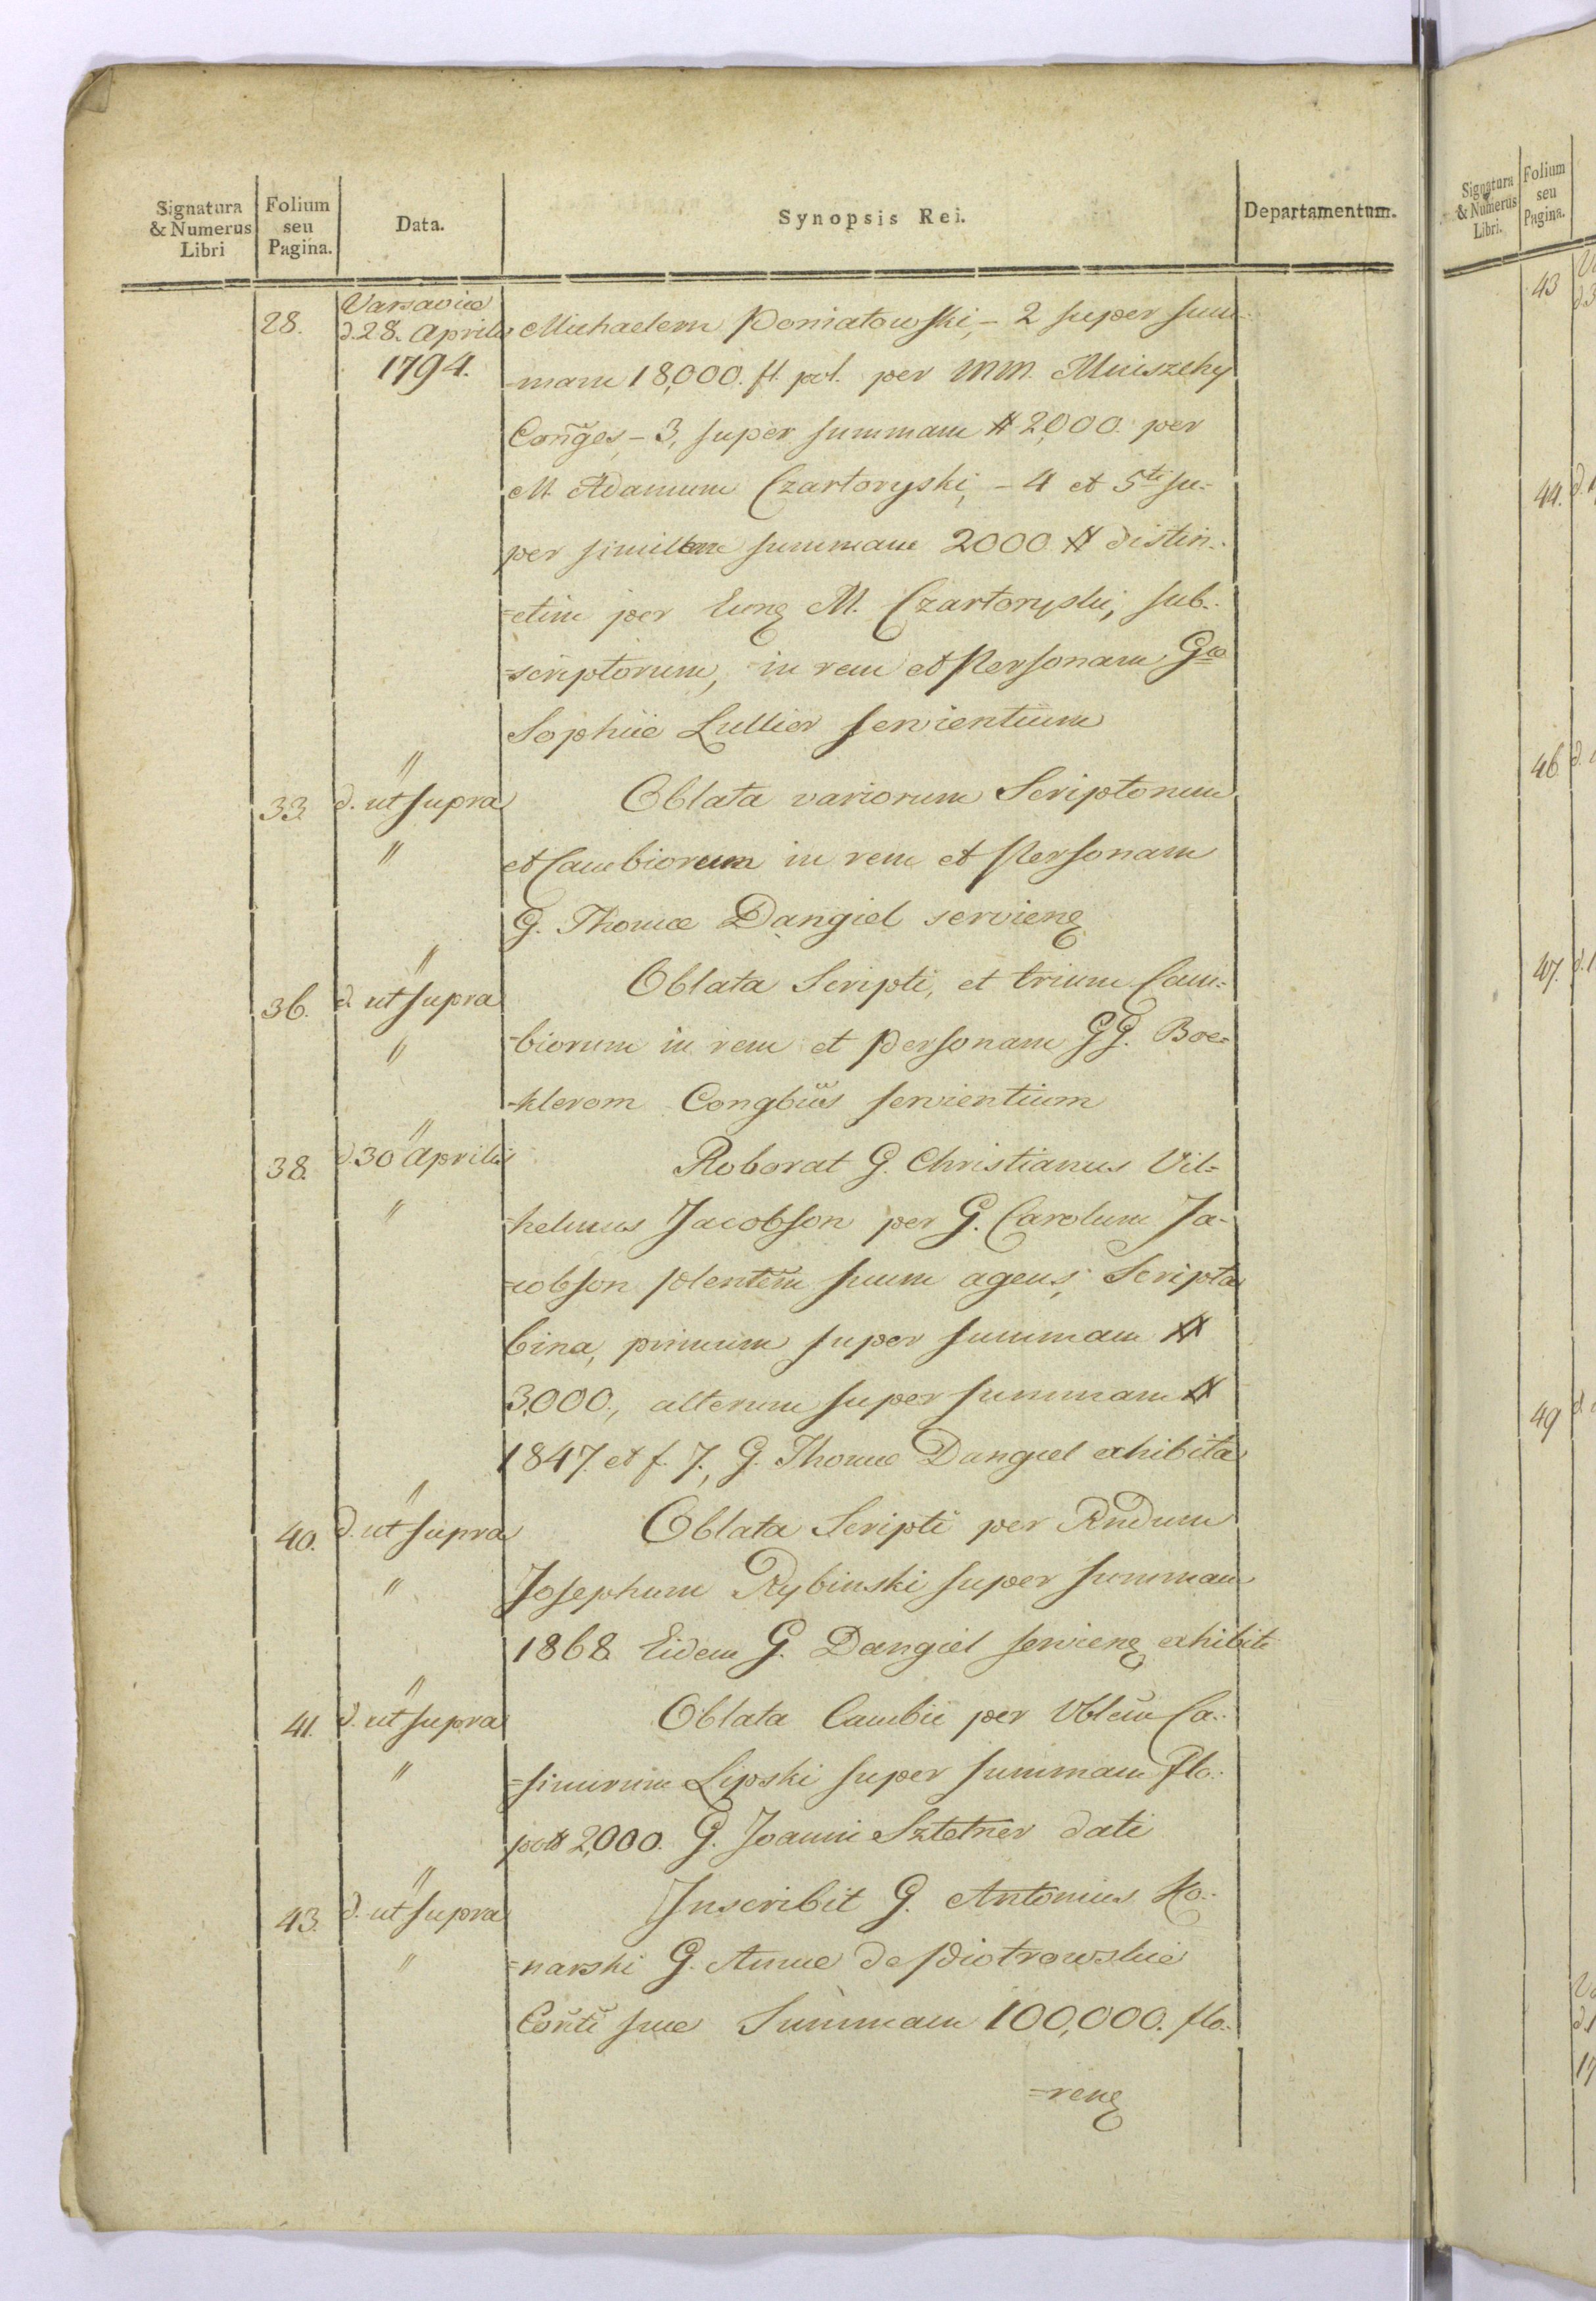 Signatura & Numerus Libri
Folium seu Pagina.
Data.
Synopsis Rei.
Departamentum.
28. Varsaviæ
d. 28. Aprilis Michaelem Poniatowski, – 2 super sum-
1794. -mam 18,000. fl. pol. per MM. Mniszchy
Conges, – 3, super summam # 2,000. per
M. Adamum Czartoryski, – 4 et 5ti su-
per similem summam 2000 # distin-
=ctim per Eung M. Czartoryski, sub-
=scriptorum, in rem et Personam Gæ
Sophiæ Lullier servientium
"
33. d. ut supra Oblata variorum Scriptorum
" et Cambiorum in rem et Personam
G. Thomæ Dangiel servieng
"
36. d. ut supra Oblata Scripti, et trium Cam-
" -biorum in rem et personam GG. Boe-
-klerom Congbus servientium
"
38. d. 30 Aprilis Roborat G. Christianus Vil=
" =helmus Jacobson per G. Carolum Ja-
=cobson plentem suum agens, Scripta
bina, primum super summam #
3,000., alterum super summam #
1847. et f. 7., G. Thomæ Dangiel exhibita
"
40. d. ut supra Oblata Scripti per Rndum
" Josephum Rybinski super summam
1868. Eidem G. Dangiel servieng exhibiti
"
41. d. ut supra Oblata Cambii per Vblem Ca-
" =simirum Lipski super summam flo-
2,000. G. Joanni Sztetner dati
"
43. d. ut supra Inscribit G. Antonius Ko-
" =narski G. Annæ de Piotrowskie
Conti suæ Summam 100,000. flo-
=reng
Signatura & Numerus Libri.
Folium seu Pagina.
43
44.
46
47.
49